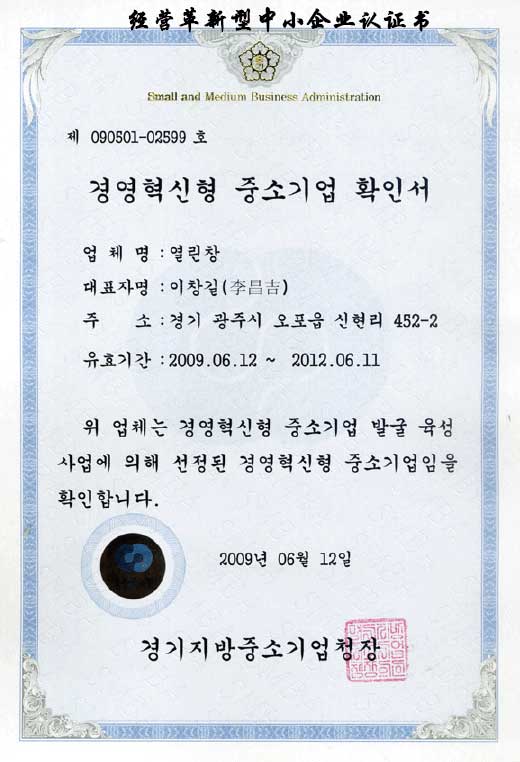 经营革新型中小企业认证书
Small and Medium Business Administration
제 090501-02599 호
경영혁신형 중소기업 확인서
업 체 명 : 열린창
대표자명 : 이창길(李昌吉)
주 소 : 경기 광주시 오포읍 신현리 452-2
유효기간 : 2009.06.12 ~ 2012.06.11
위 업체는 경영혁신형 중소기업 발굴 육성
사업에 의해 선정된 경영혁신형 중소기업임을
확인합니다.
2009년 06월 12일
경기지방중소기업청장